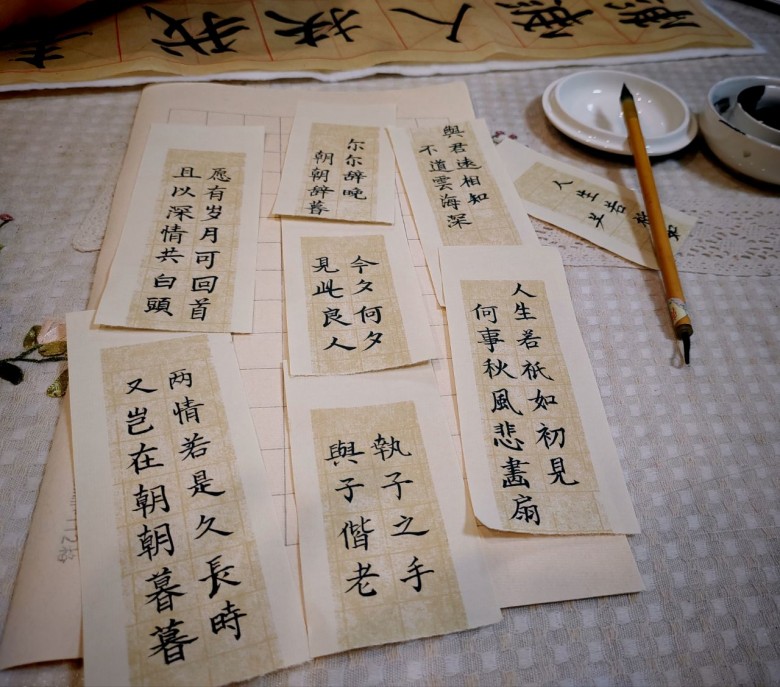 無無人扶我
愿有岁月可回首
且以深情共白頭
尔尔辞晚
朝朝辞暮
與君遠相知
不道雲海深
人生若
今夕何夕
見此良人
人生若祇如初見
何事秋風悲畫扇
两情若是久長時
又岂在朝朝暮暮
執子之手
與子偕老